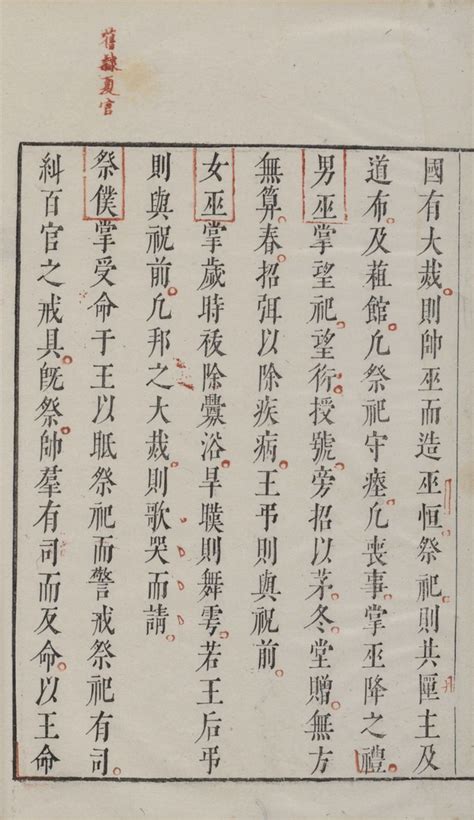 國有大烖則帥巫而造巫恒祭祀則共匰主及
道布及蒩館凡祭祀守瘞凡喪事掌巫降之禮
男巫掌望祀望衍授號旁招以茅冬堂贈無方
無算春招弭以除疾病王弔則與祝前
女巫掌歲時祓除釁浴旱暵則舞雩若王后弔
則與祝前凡邦之大烖則歌哭而請
舊隸夏官
祭僕掌受命于王以眡祭祀而警戒祭祀有司
糾百官之戒具旣祭帥羣有司而反命以王命